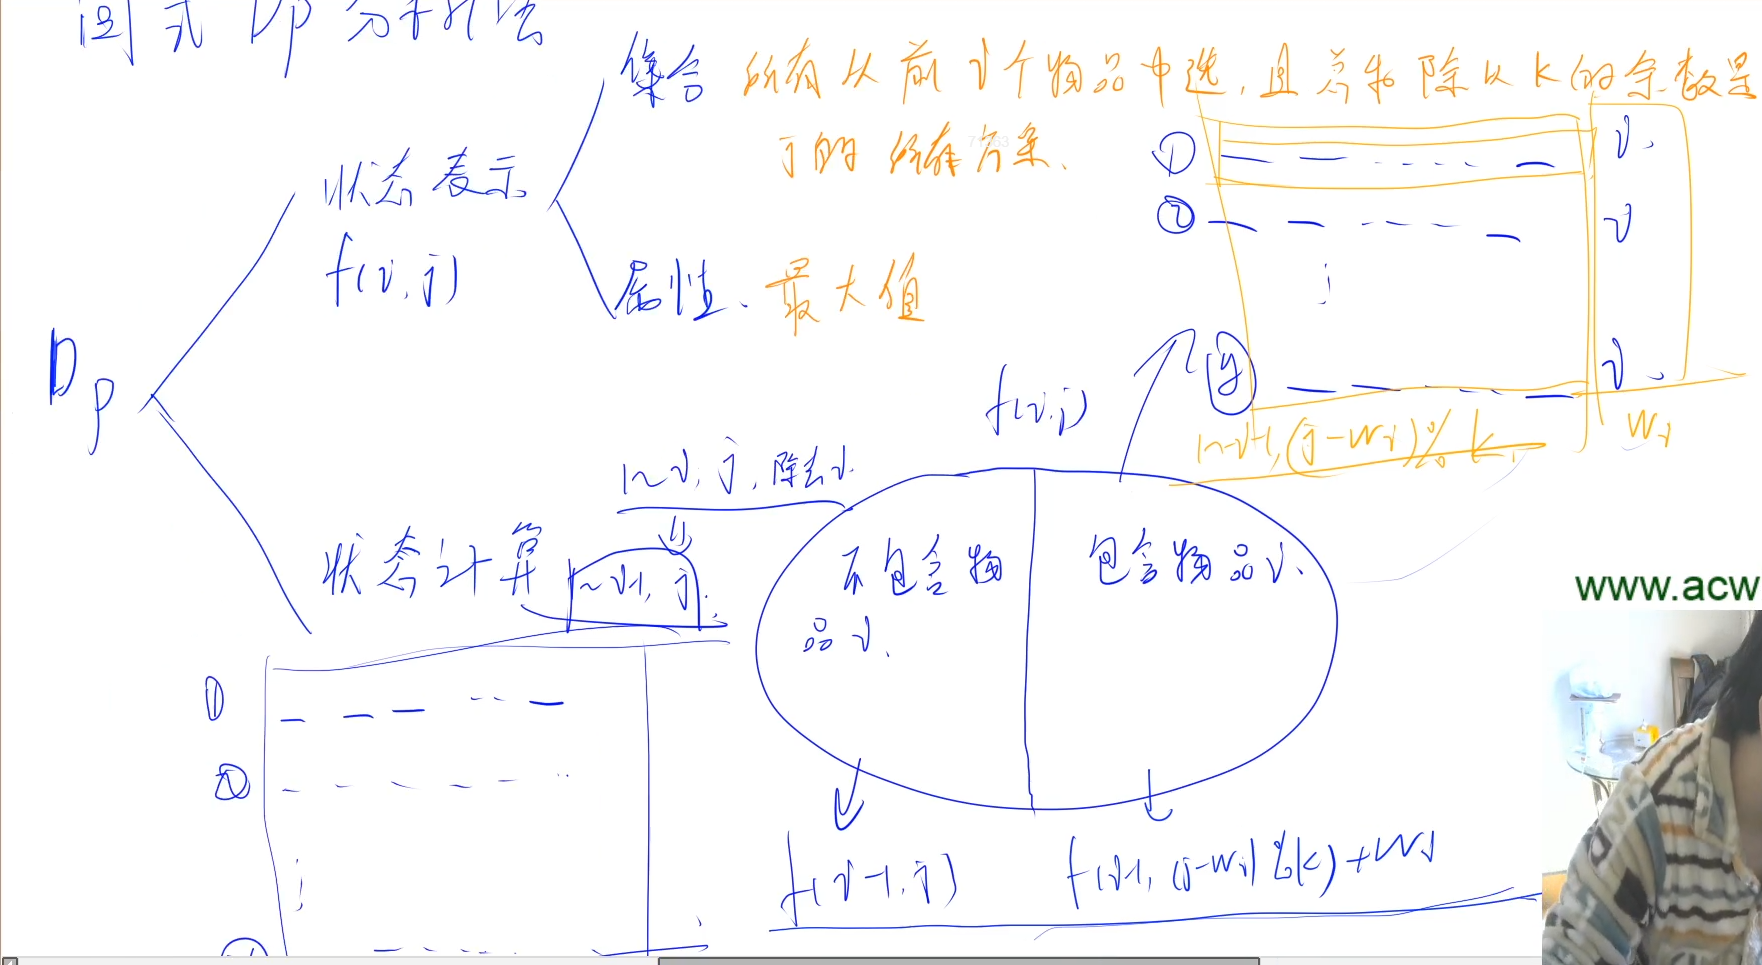 闫式 DP 分析法
集合 所有从前i个物品中选,且总和除以K的余数是
j的所有方案.
状态表示
f(i,j)
属性. 最大值
① i.
② i
i.
1~i-1,(j-wi)%k wi
DP
f(i,j)
1~i, j, 除去i.
状态计算 1~i-1, j.
不包含物
品i.
包含物品i.
www.acw
①
②
f(i-1,j) f(i-1,(j-wi)%k)+wi